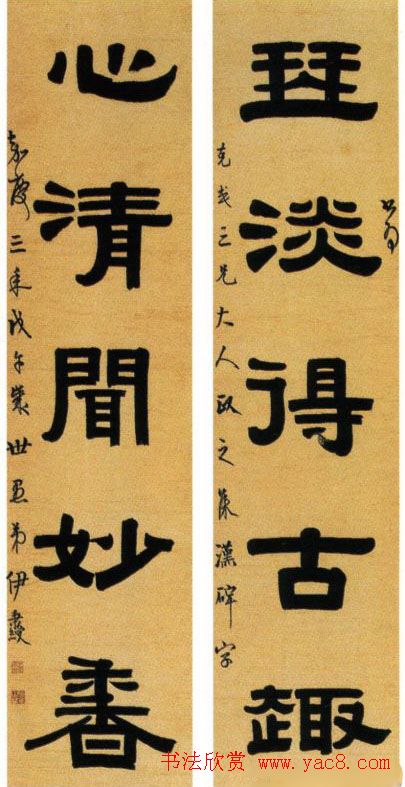 珡淡得古趣
三兄大人政之集漢碑字
心清聞妙香
嘉慶三年戊午嵗世愚弟伊秉綬
书法欣赏 www.yac8.com